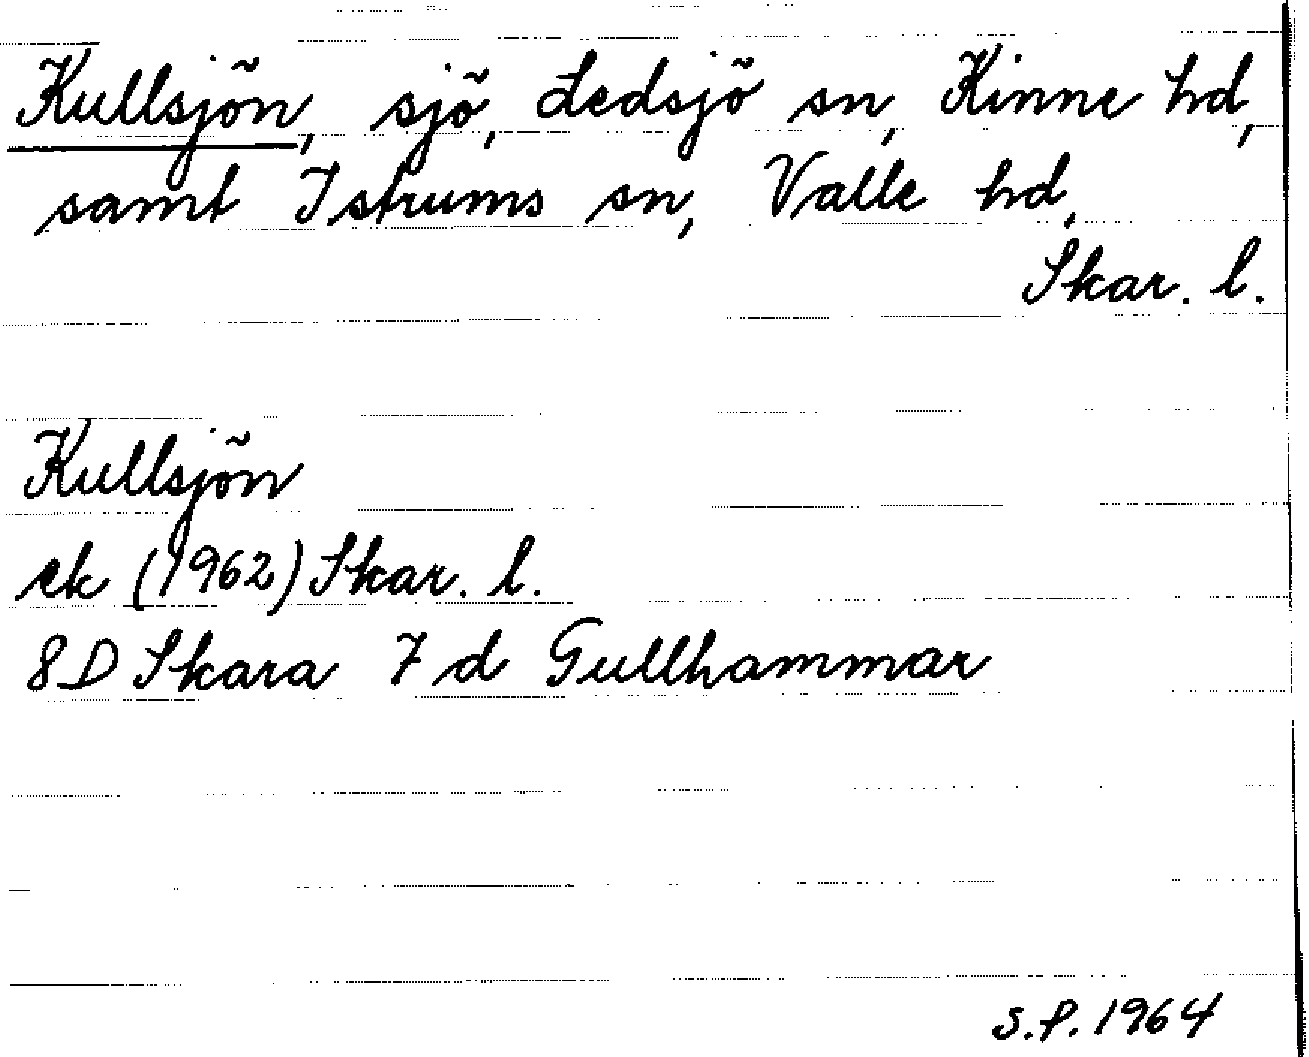 Kullsjön, sjö, Ledsjö sn, Kinne hd,
samt Istrums sn, Valle hd,
Skar. l.
Kullsjön
ek (1962) Skar. l.
8D Skara 7 d Gullhammar
S.P. 1964